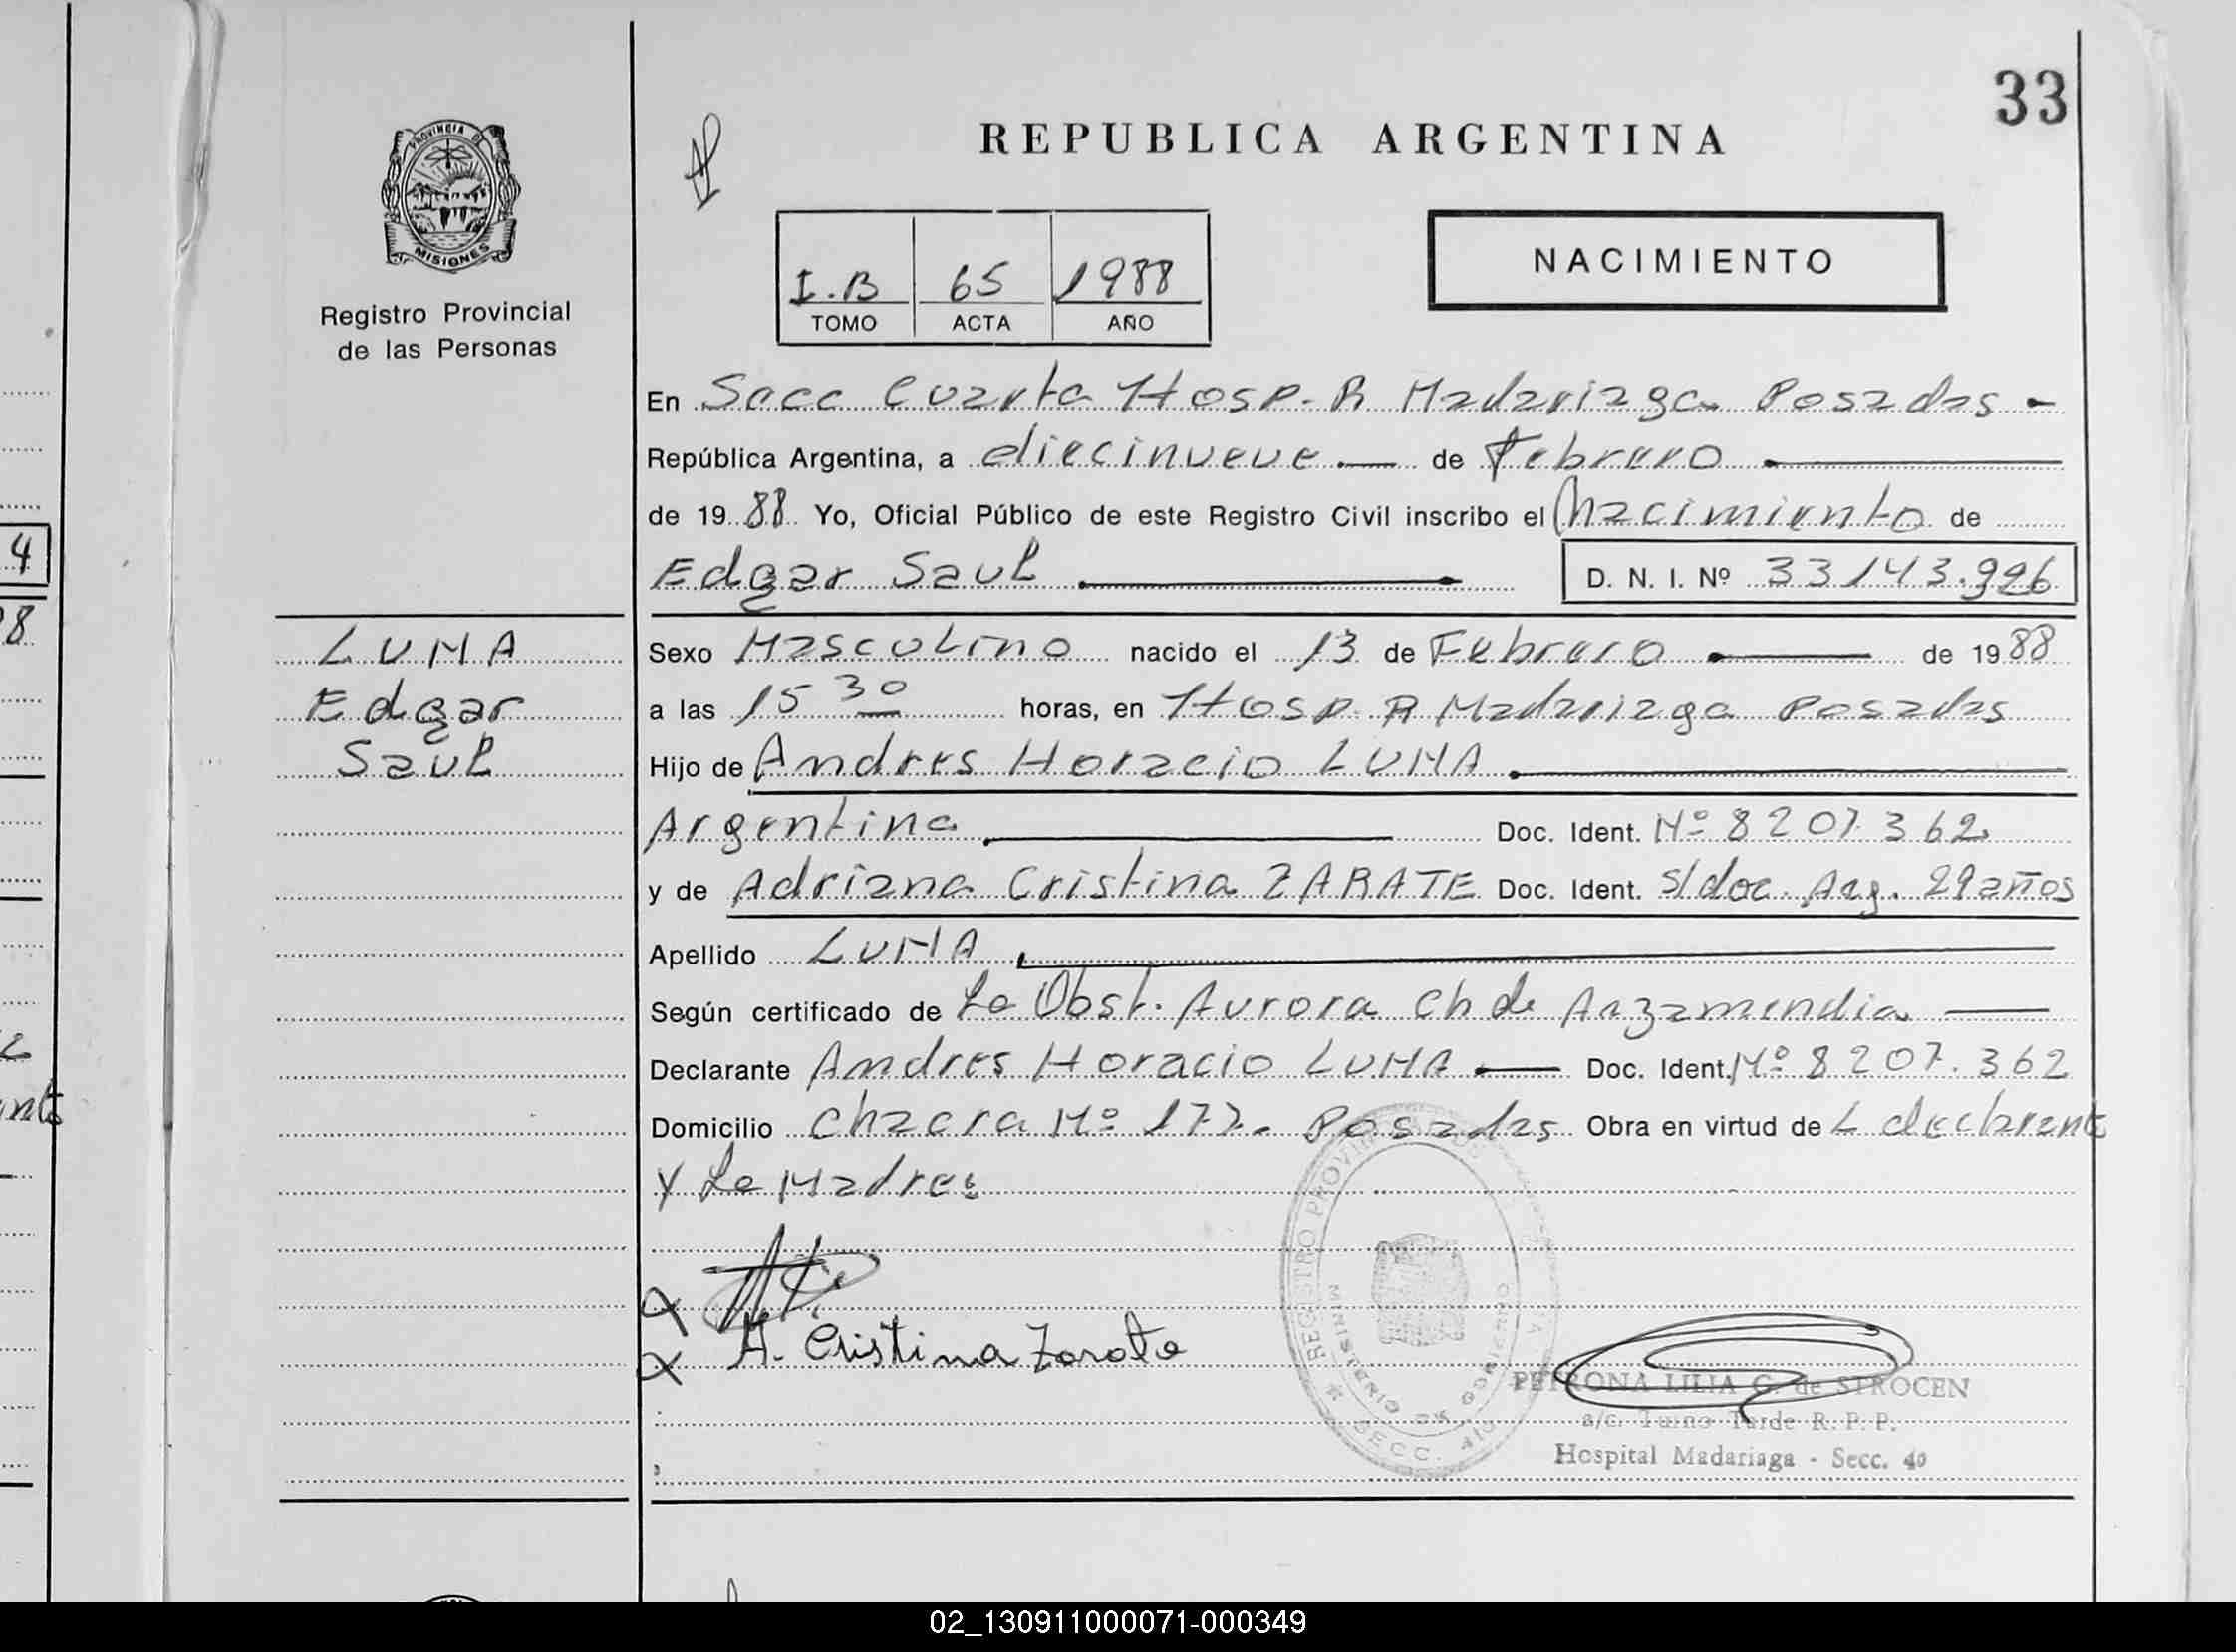 33
REPUBLICA ARGENTINA
PROVINCIA DE
MISIONES
Registro Provincial
de las Personas
I.B 65 1988
TOMO ACTA AÑO
NACIMIENTO
En Secc Cuarta Hosp. R Madariaga Posadas -
República Argentina, a diecinueve de Febrero
de 1988 Yo, Oficial Público de este Registro Civil inscribo el Nacimiento de
Edgar Saul D. N. I. Nº 33143.996
LUNA
Edgar
Saul
Sexo Masculino nacido el 13 de Febrero de 1988
a las 15 30 horas, en Hosp. R Madariaga Posadas
Hijo de Andres Horacio LUNA
Argentina Doc. Ident. Nº 8207.362
y de Adriana Cristina ZARATE Doc. Ident. s/doc. Arg. 29 años
Apellido LUNA
Según certificado de La Obst. Aurora Ch de Arzamendia
Declarante Andres Horacio LUNA Doc. Ident. Nº 8207.362
Domicilio Chacra Nº 172. Posadas Obra en virtud de L declarante
y La Madre
A. Cristina Zarate
REGISTRO PROVINCIAL
MINISTERIO DE GOBIERNO
SECC. 4
PETRONA LILIA G. de STROCEN
a/c. Turno Tarde R. P. P.
Hospital Madariaga - Secc. 4º
4
8
02_130911000071-000349